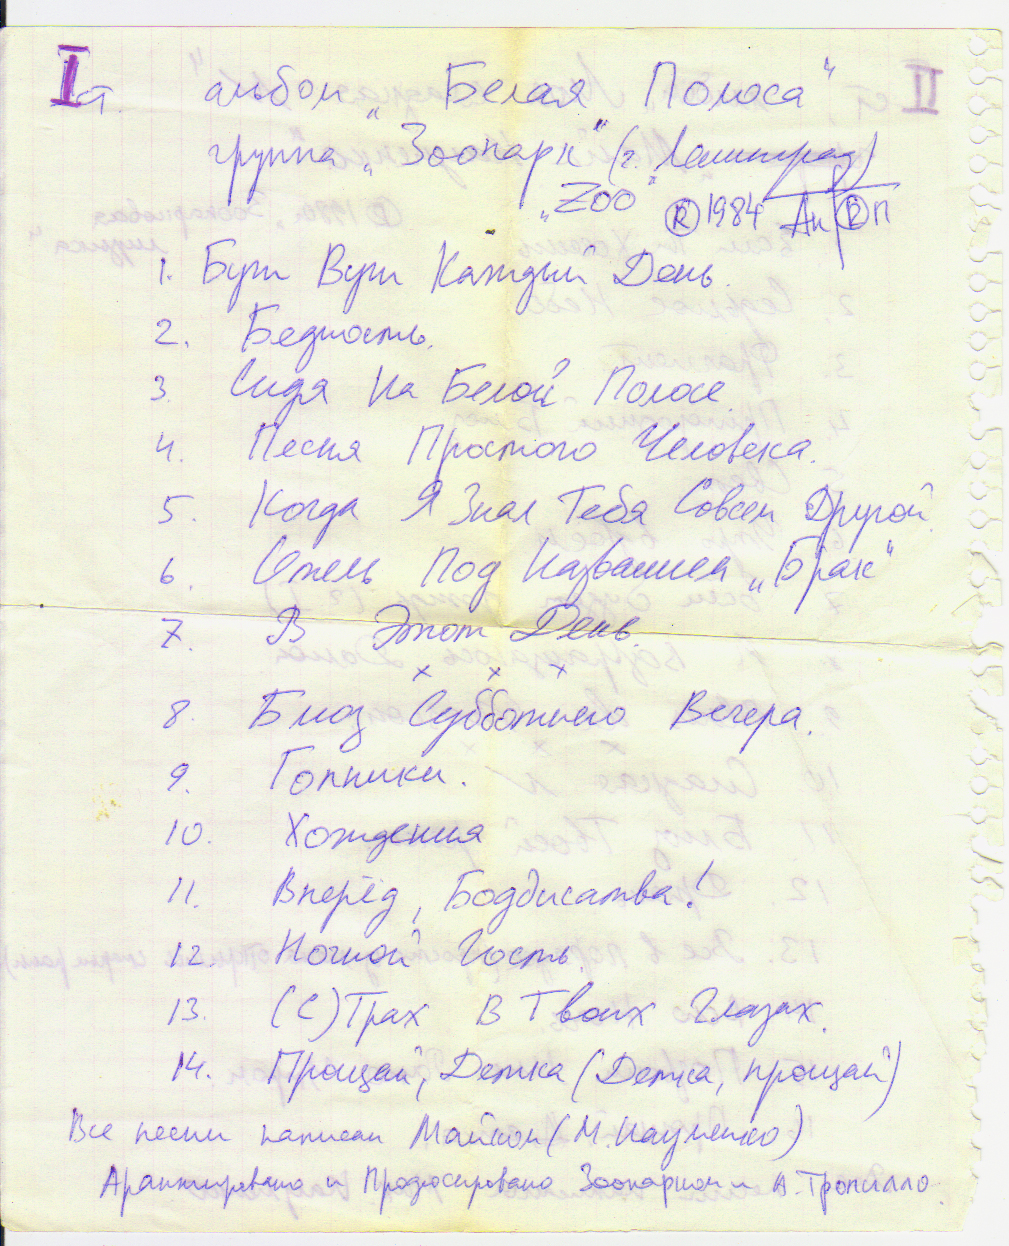 I ст. альбом „Белая Полоса“
группа „Зоопарк“ (г. Ленинград)
„ZOO“ Ⓡ 1984 АнТРоП
1. Буги Вуги Каждый День.
2. Бедность.
3. Сидя На Белой Полосе.
4. Песня Простого Человека.
5. Когда Я Знал Тебя Совсем Другой.
6. Отель Под Названием „Брак“
7. В Этот День.
x x x
8. Блюз Субботнего Вечера.
9. Гопники.
10. Хождения
11. Вперёд, Бодхисатва!
12. Ночной Гость.
13. (С)Трах В Твоих Глазах.
14. Прощай, Детка (Детка, прощай)
Все песни написал Майком (М. Науменко)
Аранжировано и Продюсировано Зоопарком и А. Тропилло.